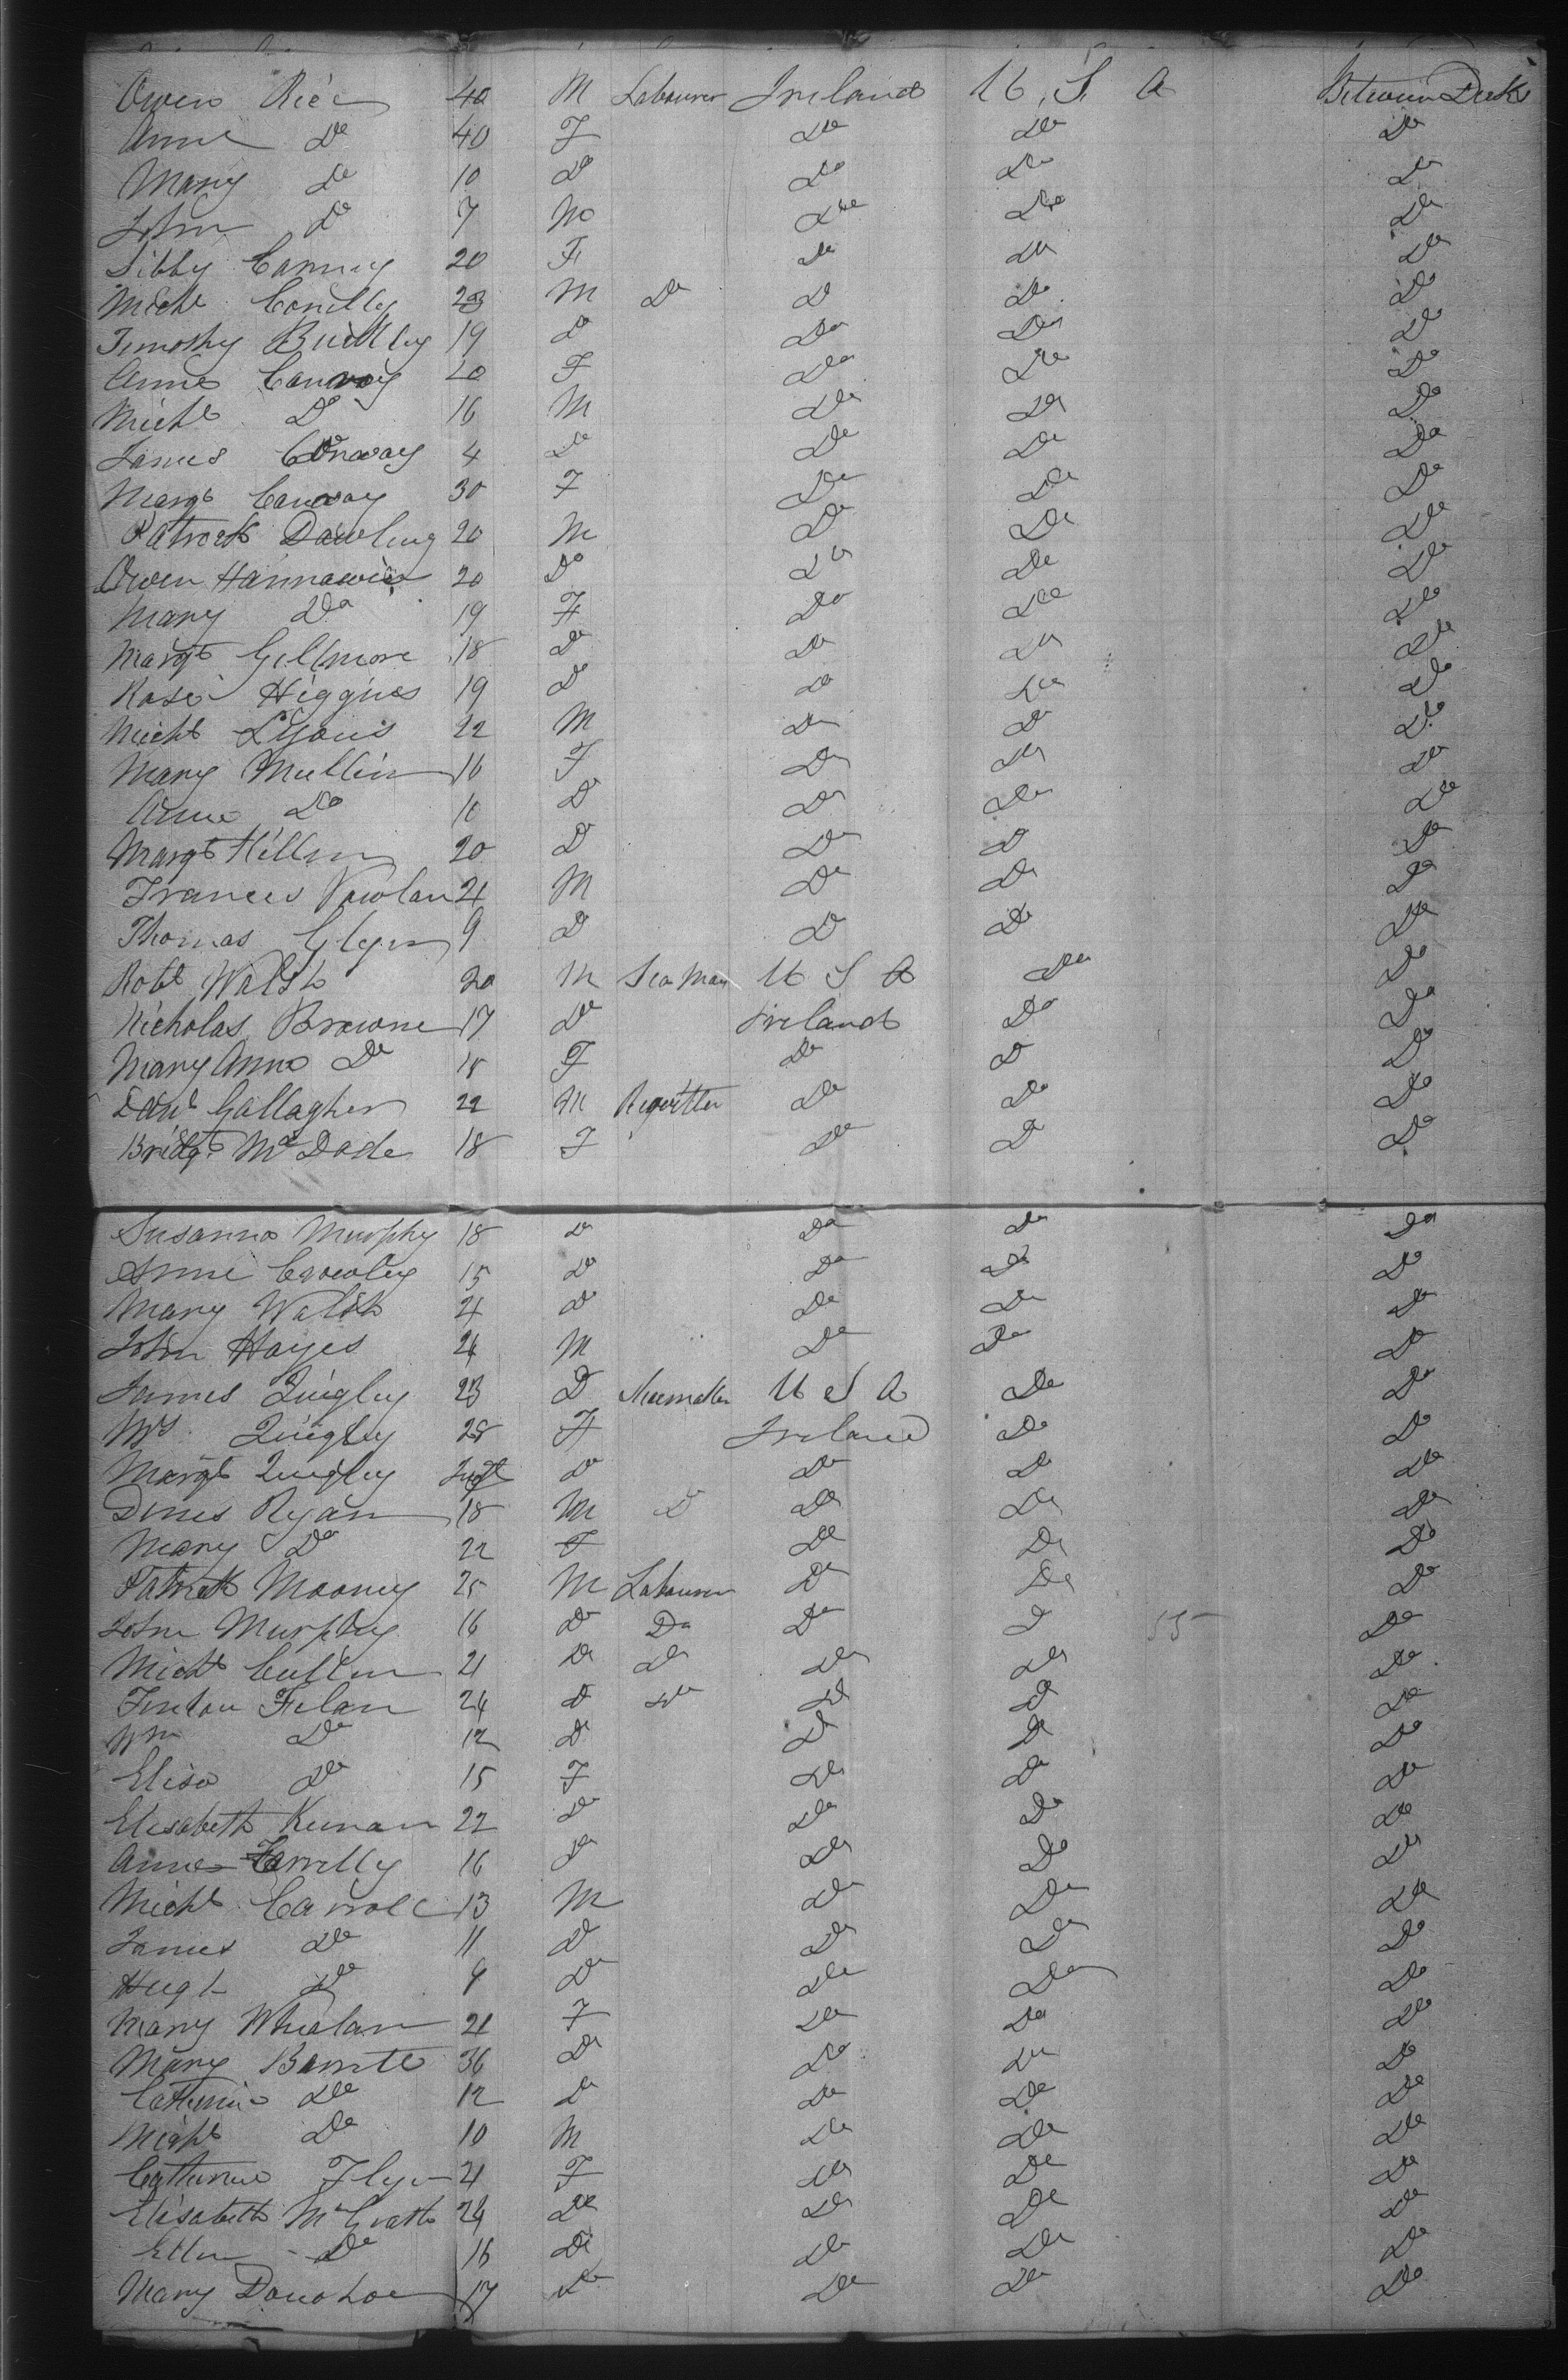 Owen Rice 40 M Labourer Ireland U. S. A Between Decks
Anne Do 40 F Do Do Do
Mary Do 10 Do Do Do Do
John Do 7 M Do Do Do
Sibby Canning 20 F Do Do Do
Michl Conelly 23 M Do Do Do Do
Timothy Buckley 19 Do Do Do Do
Anne Conway 20 F Do Do Do
Michl Do 16 M Do Do Do
James Conway 4 Do Do Do Do
Margt Conway 30 F Do Do Do
Patrick Dowling 20 M Do Do Do
Owen Hannawin 20 Do Do Do Do
Mary Do 19 F Do Do Do
Margt Gillmore 18 Do Do Do Do
Rose Higgins 19 Do Do Do Do
Michl Lyons 22 M Do Do Do
Mary Mullin 16 F Do Do Do
Anne Do Do Do Do Do
Margt 20 Do Do Do Do
Frances Nowlan 21 M Do Do Do
Thomas Glynn 9 Do Do Do Do
Robt Walsh 20 M Sea Man U S A Do Do
Nicholas Browne 17 Do Ireland Do Do
Mary Anne Do 18 F Do Do Do
Danl Gallagher 22 M Do Do Do
Bridgt McDade 18 F Do Do Do
Susanna Murphy 18 Do Do Do Do
Anne Crowley 15 Do Do Do Do
Mary Walsh 21 Do Do Do Do
John Hayes 24 M Do Do Do
James Quigley 23 Do U S A Do Do
Mrs Quigley 28 F Ireland Do Do
Margt Quigley Inft Do Do Do Do
Denis Ryan 18 M Do Do Do Do
Mary Do 22 F Do Do Do
Patrick Mooney 25 M Labourer Do Do Do
John Murphy 16 Do Do Do Do 55 Do
Michl Cullen 21 Do Do Do Do Do
Fintan Felan 24 Do Do Do Do Do
Wm Do 12 Do Do Do Do
Eliza Do 15 F Do Do Do
Elisabeth Keenan 22 Do Do Do Do
Anne Farrelly 16 Do Do Do Do
Michl Carroll 13 M Do Do Do
James Do 11 Do Do Do Do
Hugh Do 9 Do Do Do Do
Mary Whealan 21 F Do Do Do
Mary 36 Do Do Do Do
Catherine Do 12 Do Do Do Do
Michl Do 10 M Do Do Do
Catherine Flyn 21 F Do Do Do
Elisabeth McGrath 24 Do Do Do Do
Ellen Do 16 Do Do Do Do
Mary Donohoe 17 Do Do Do Do